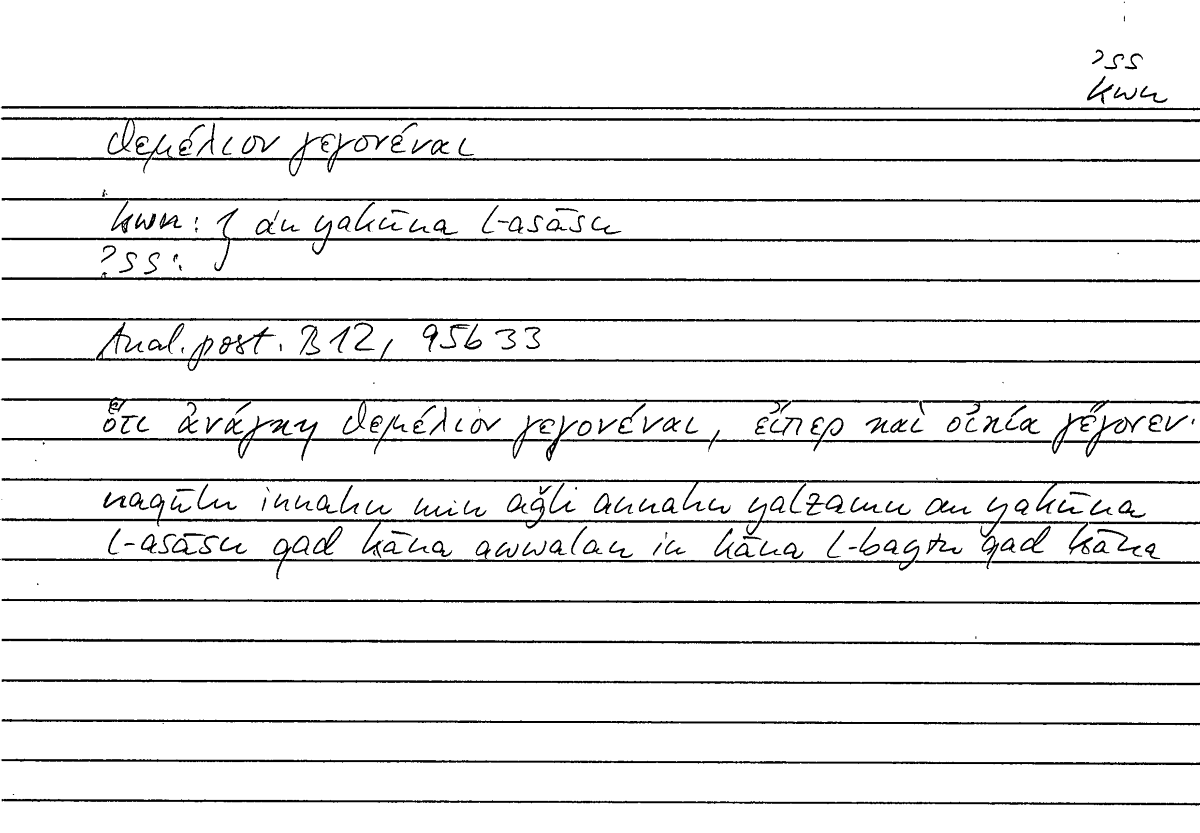 ʔss
kwn
θεμέλιον γεγονέναι
kwn: } an yakūna l-asāsu
ʔss:
Anal. post. B 12, 95b33
ὅτι ἀνάγκη θεμέλιον γεγονέναι, εἴπερ καὶ οἰκία γέγονεν·
naqūlu innahu min aǧli annahu yalzamu an yakūna
l-asāsu qad kāna awwalan in kāna l-baytu qad kāna